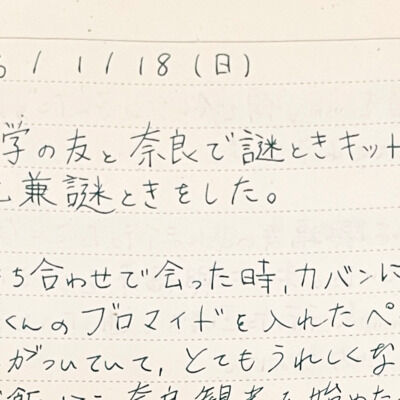 / 1 / 18 (日)
学の友と奈良で謎ときキット
兼謎ときをした。
ち合わせで会った時、カバンに
くんのブロマイドを入れたペ
がついていて、とてもうれしくな